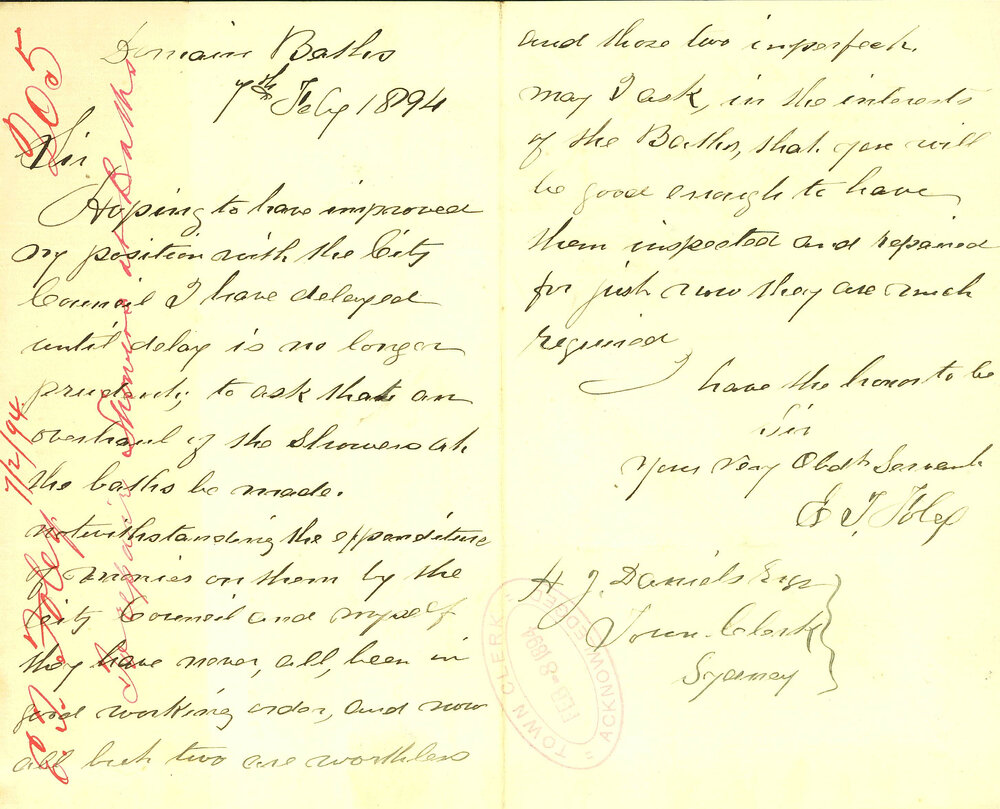 Domain Baths
7th Feby 1894
Sir
Hoping to have improved
my position with the City
Council I have delayed
until delay is no longer
prudent, to ask that an
overhaul of the showers at
the baths be made.
notwithstanding the expenditure
of monies on them by the
City Council and myself
they have never, all, been in
good working order, and now
all but two are worthless
and those two imperfect.
may I ask, in the interests
of the Baths, that you will
be good enough to have
them inspected and repaired
for just now they are much
required
I have the honor to be
Sir
Your Very Obdt Servant
E T Foley
H J. Daniels Esqr
Town Clerk
Sydney
205
E. T. Foley 7/2/94
To repair Showers at Baths
"TOWN CLERK"
FEB-8 1894
"ACKNOWLEDGED"